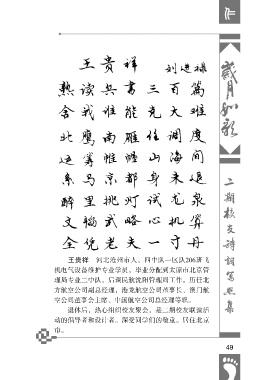 作
王贵祥
刘进禄
熟读兵书三百篇
舍我谁能克大难
北鹰南雁任调度
运筹帷幄山海间
系马京都身未退
醉里挑灯试龙泉
文韬武略心机算
全凭老夫一寸丹
王贵祥 河北沧州人。四中队一区队206班飞
机电气设备维护专业学员。毕业分配到太原市北京管
理局专业二中队。后调民航沈阳管理局工作。历任北
方航空公司副总经理、港龙航空公司董事长、澳门航
空公司董事会主席、中国航空公司总经理等职。
退休后,热心组织校友聚会,是二期校友联谊活
动的倡导者和设计者,深受同学们的敬重。居住北京
市。
岁月如歌
二期校友诗词写照集
49